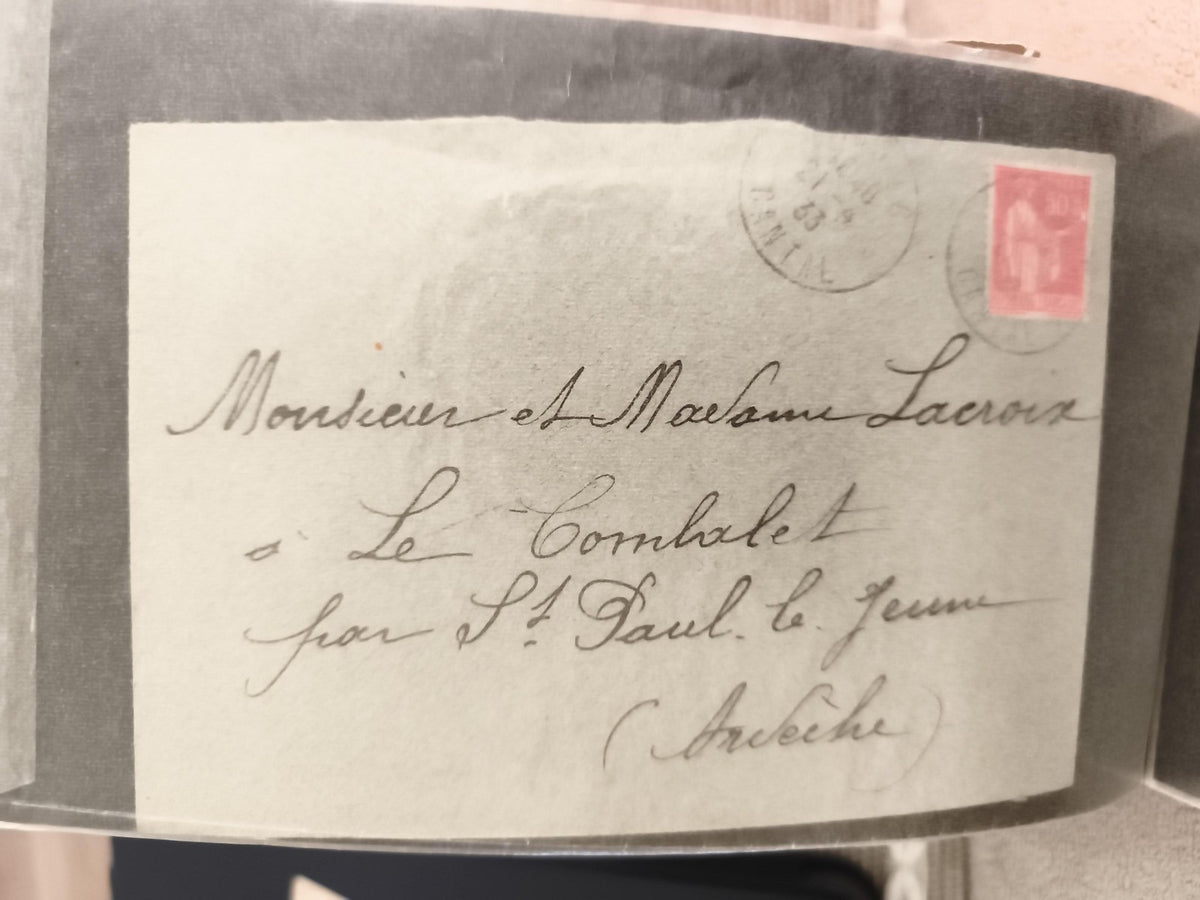 21 -4
33
CANTAL
50
Monsieur et Madame Lacroix
à Le Combalet
par St. Paul. le. Jeune
(Ardèche)